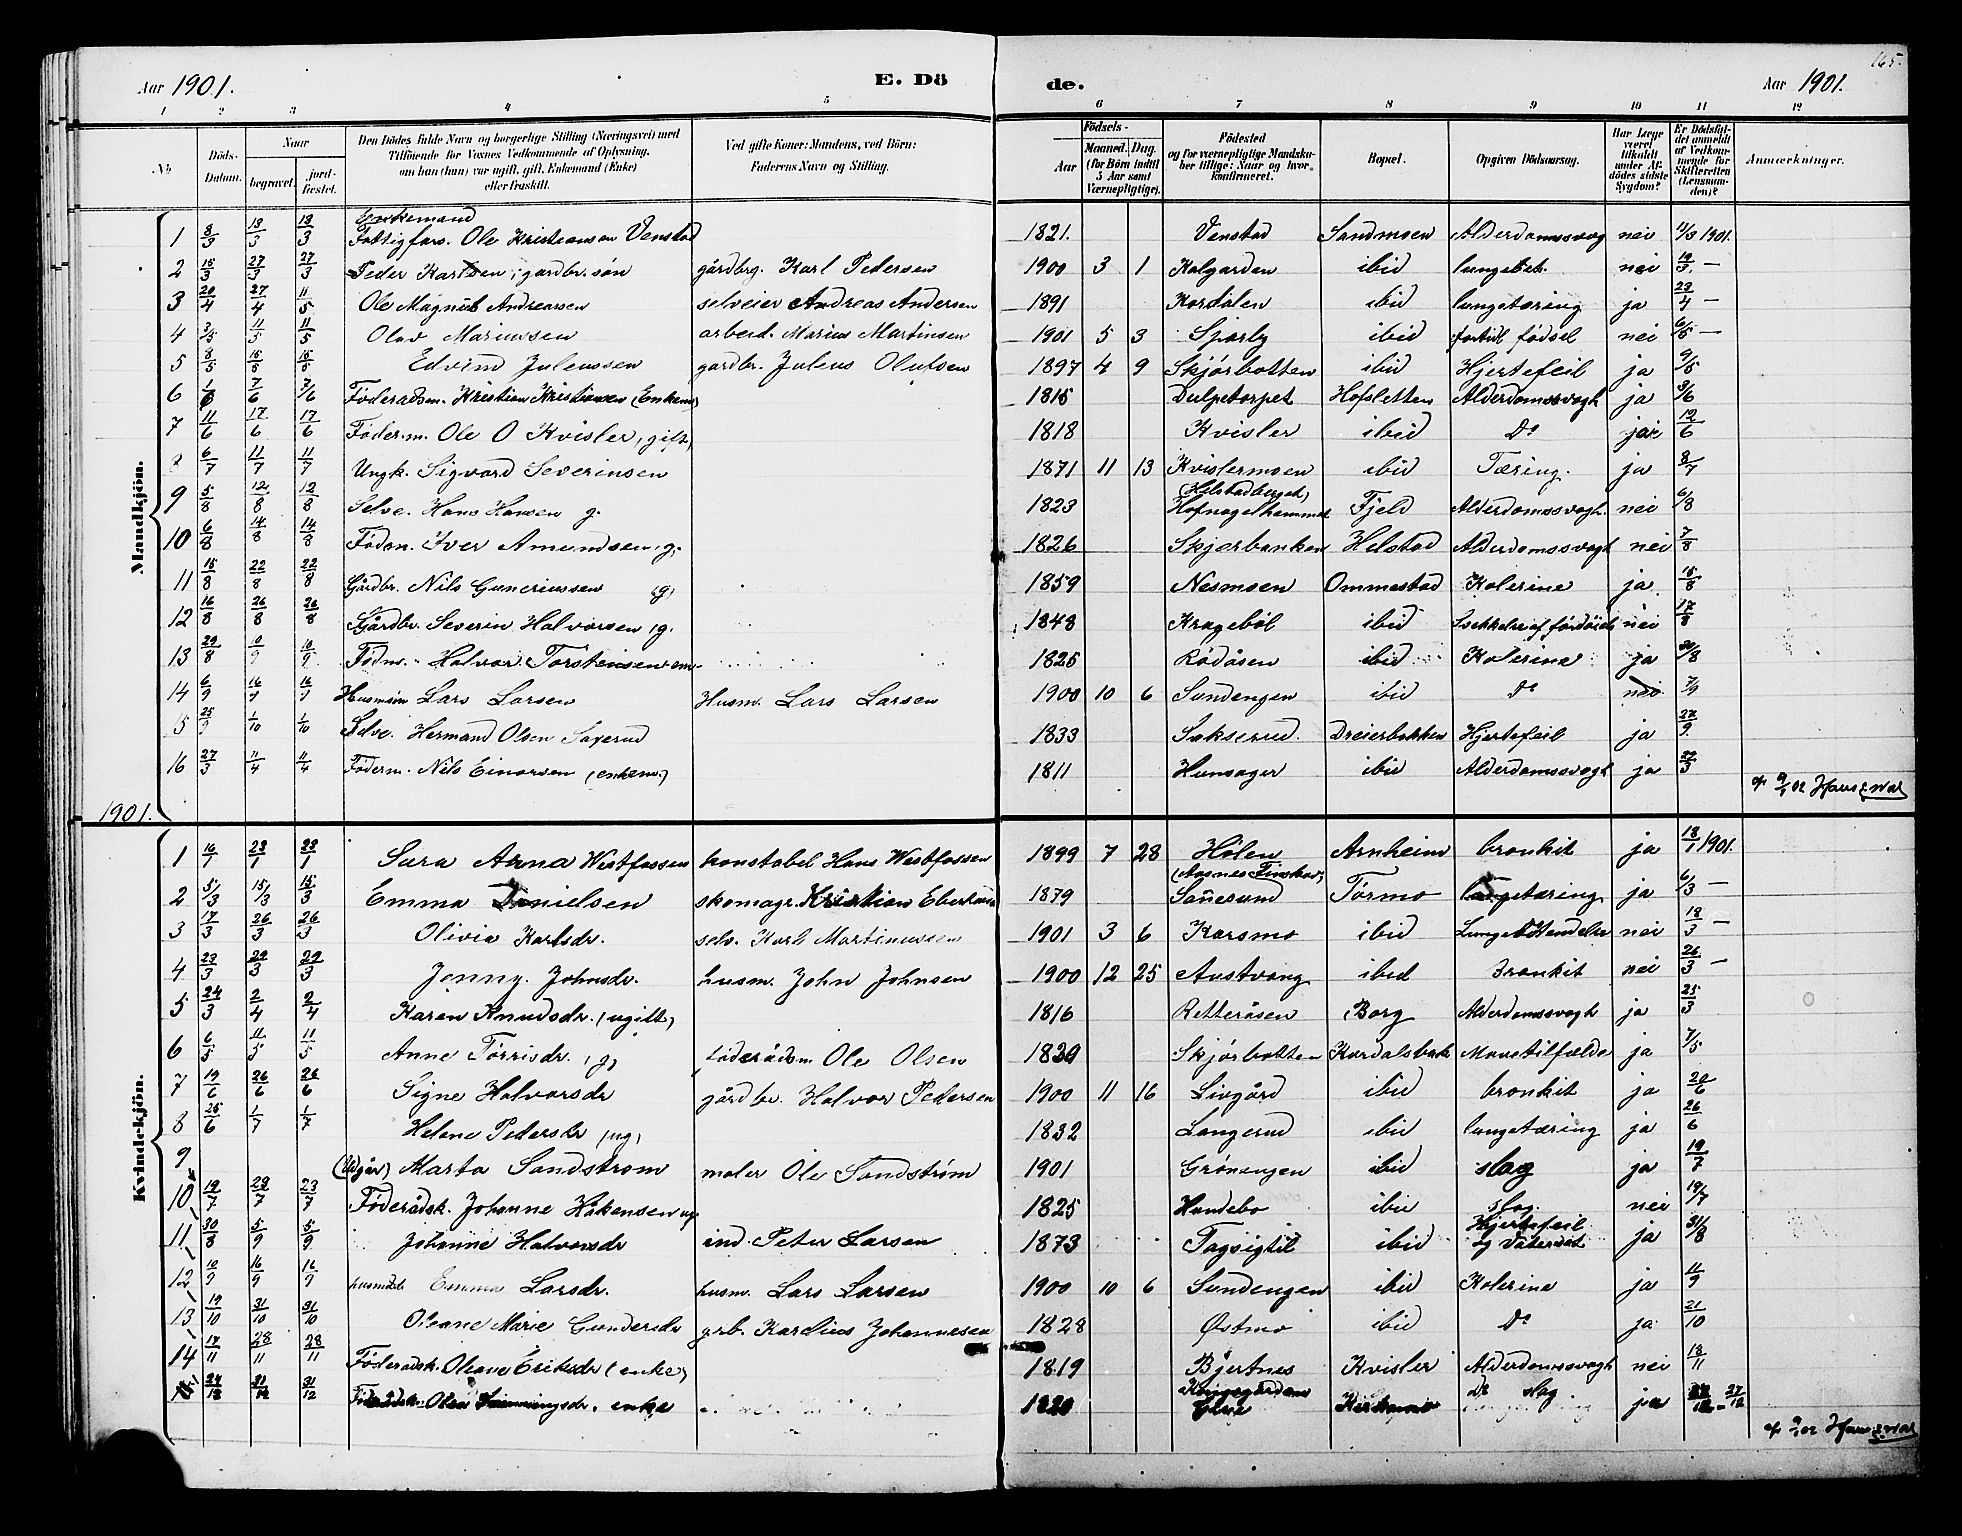 165.
Aar 1901. E. Dö de. Aar 1901.
1 2 3 4 5 6 7 8 9 10 11 12
No. Döds-Datum. Naar begravet. jord-fæstet. Den Dödes fulde Navn og borgerlige Stilling (Næringsvei) med Tilföiende for Voxnes Vedkommende af Oplysning, om han (hun) var ugift, gift, Enkemand (Enke) eller fraskilt. Ved gifte Koner: Mandens, ved Börn: Faderens Navn og Stilling. Födsels- Aar Maaned. Dag. (for Börn indtil 5 Aar samt Værnepligtige). Födested og for værnepligtige Mandskaber tillige: Naar og hvor konfirmeret. Bopæl. Opgiven Dödsaarsag. Har Læge været tilkaldt under Afdödes sidste Sygdom? Er Dödsfaldet anmeldt af Vedkommende for Skifteretten (Lensmanden)? Anmærkninger.
Mandkjön.
Enkemand
1 8/3 13/3 13/3 Fattigfors. Ole Kristiansen Venstad 1821. Venstad Sandmoen Alderdomssvag nei 11/3 1901.
2 15/3 27/3 27/3 Peder Karlsen, gardbr. søn gårdbrg. Karl Pedersen 1900 3 1 Kolgarden ibid lungebet. nei 19/3 —
3 20/4 27/4 11/5 Ole Magnus Andreassen selveier Andreas Andersen 1891 Kordalen ibid lungetæring ja 23/4 —
4 3/5 11/5 11/5 Olav Mariussen arbeid. Marius Martinsen 1901 5 3 Sparby ibid fortid. fødsel nei 6/5 —
5 8/5 15/5 15/5 Edvind Juleussen gardbr. Juleus Olufsen 1897 4 9 Skjørbotten ibid Hjertefeil ja 9/5
6 1/6 7/6 7/6 Föderadsm. Kristian Kristiansen (Enkem) 1815 Dulpetorpet Hofsletten Alderdomssvagh ja 3/6
7 11/6 17/6 17/6 Föderm. Ole O Kvisler, gift, 1818 Kvisler ibid Do ja 12/6
8 6/7 11/7 11/7 Ungk. Sigvard Severinsen 1871 11 13 Kvislermoen ibid Tæring. ja 8/7
(Helstadberget)
9 5/8 12/8 12/8 Selve. Hans Hansen g. 1823 Hofnagelhammer Fjeld Alderdomssvagh. nei 6/8
10 6/8 14/8 14/8 Födm. Iver Amundsen, g. 1826 Skjerbanken Helstad Alderdomssvagt nei 7/8
11 15/8 22/8 22/8 Gårdbr. Nils Guneriussen (g) 1859 Nesmoen Ommestad Kolerine ja. 15/8
12 16/8 26/8 26/8 Gårdbr. Severin Halvorsen, g. 1848 Kragebøl ibid Svækkelse af fördöiels nei 17/8
13 29/8 10/9 10/9 Födm. Halvor Torstensen em. 1825 Rödåsen ibid Kolerine ja 30/8
14 6/9 16/9 16/9 Husmsøn Lars Larsen Husm. Lars Larsen 1900 10 6 Sundengen ibid Do nei 7/9
15 25/9 1/10 1/10 Selve. Hermand Olsen Saxerud 1833 Sakserud. Dreierbakken Hjertefeil ja 27/9
16 27/3 11/4 11/4 Föderm. Nils Einarsen (enkem.) 1811 Hunsager ibid Alderdomssvagt ja 29/3
9/1 02
1901.
Kvindekjön.
1 16/1 23/1 23/1 Sara Anna Westfossen konstabel Hans Westfossen 1899 7 28 Hölen Arnheim bronkit ja 18/1 1901.
(Aasnes Finskov)
2 5/3 15/3 15/3 Emma Danielsen skomagr. Kristian 1879 Sønesund Tørmo lungetæring ja 6/3 —
3 17/3 26/3 26/3 Olivia Karlsdr. selv. Karl Martinussen 1901 3 6 Karsmo ibid nei 18/3 —
4 23/3 29/3 29/3 Jenny Johnsdr. husm. John Johnsen 1900 12 25 Austvang ibid Bronkit nei 26/3 —
5 24/3 2/4 2/4 Karen Knudsdr. (ugift) 1816 Retteråsen Borg Alderdomssvagh ja 25/3
6 6/5 11/5 11/5 Anne Törrisdr. (g) föderådsm Ole Olsen 1830 Skjørbotten Kordalsbak Mavetilfælde ja 7/5
7 19/6 26/6 26/6 Signe Halvorsdr gårdbr. Halvor Pedersen 1900 11 16 Livgård ibid bronkit ja 20/6
8 25/6 1/7 1/7 Helene Pedersdr (ug) 1832 Langerud ibid lungetæring ja 26/6
9 (Udgår) Marta Sandstrøm maler Ole Sandstrøm 1901 Grønengen ibid slag ja 19/7
10 19/7 23/7 23/7 Föderådsk. Johanne Håkensen ug 1825 Handebo ibid slag. nei 19/7
11 30/8 5/9 5/9 Johanne Halvorsdr ind. Peter Larsen 1873 Tagsigtil ibid Hjertefeil og Vatersot ja 31/8
12 10/9 16/9 16/9 husmdtr Emma Larsdr. husm. Lars Larsen 1900 10 6 Sundengen ibid Kolerine ja 11/9
13 19/10 31/10 31/10 Oleane Marie Gundersdr grb. Karelius Johannesen 1828 Østmo ibid Do ja 21/10
14 17/11 28/11 28/11 Föderadsk. Oleane Eriksdr (enke) 1819 Bjertnes Kvisler Alderdomssvagh nei 18/11
15 24/12 31/12 31/12 Föderådsk. Olea enke 1820 Kirkmoe Do slag ja 27/12 - 27/12
9/1 02